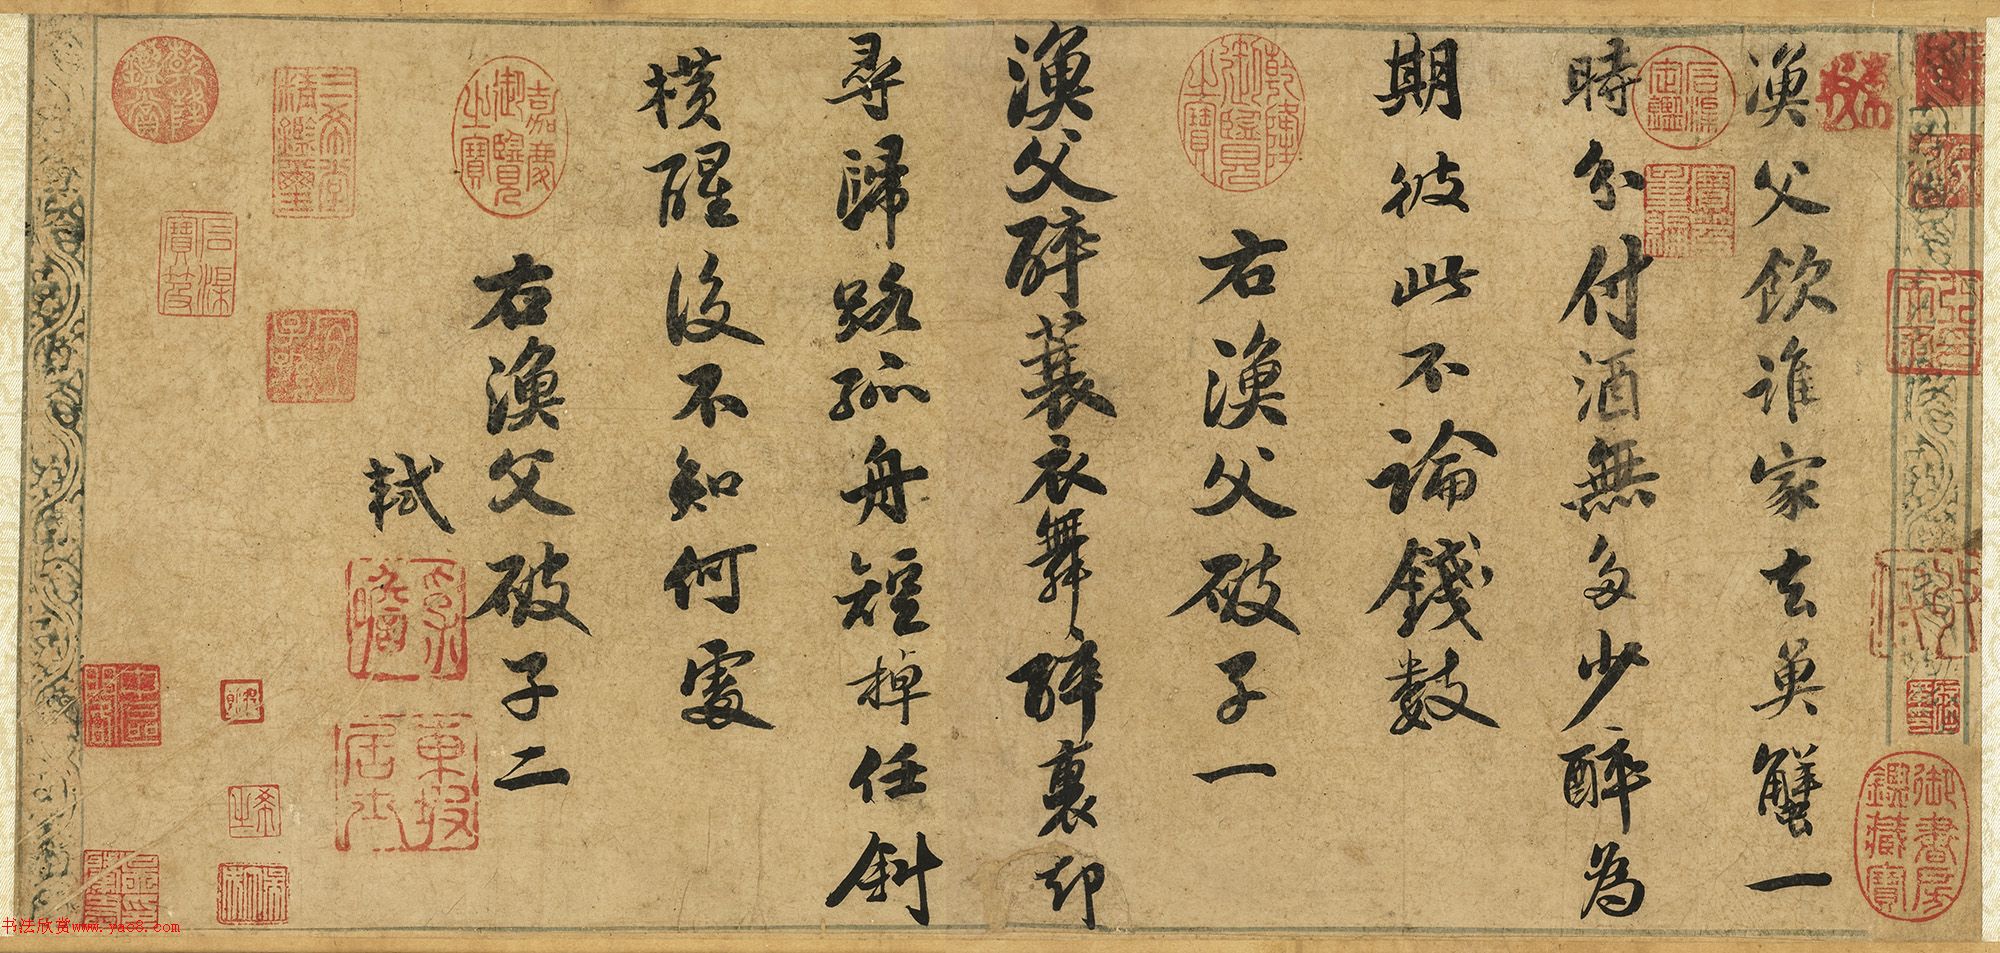 漁父飲誰家去魚蟹一
時分付酒無多少醉為
期彼此不論錢數
右漁父破子一
漁父醉蓑衣舞醉裏却
尋歸路孤舟短棹任斜
橫醒後不知何處
右漁父破子二
軾
石渠定鑑
寶笈重編
御書房鑑藏寶
乾隆御覽之寶
嘉慶御覽之寶
三希堂精鑑璽
宜子孫
東坡居士
乾隆鑑賞
石渠寶笈
书法欣赏www.yac8.com